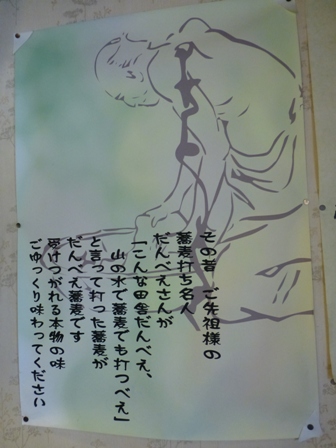 その昔　ご先祖様の
蕎麦打ち名人
だんべえさんが
「こんな田舎だんべえ、
山の水で蕎麦でも打つべえ」
と言って打った蕎麦が
だんべえ蕎麦です
受けつがれる本物の味
ごゆっくり味わってください